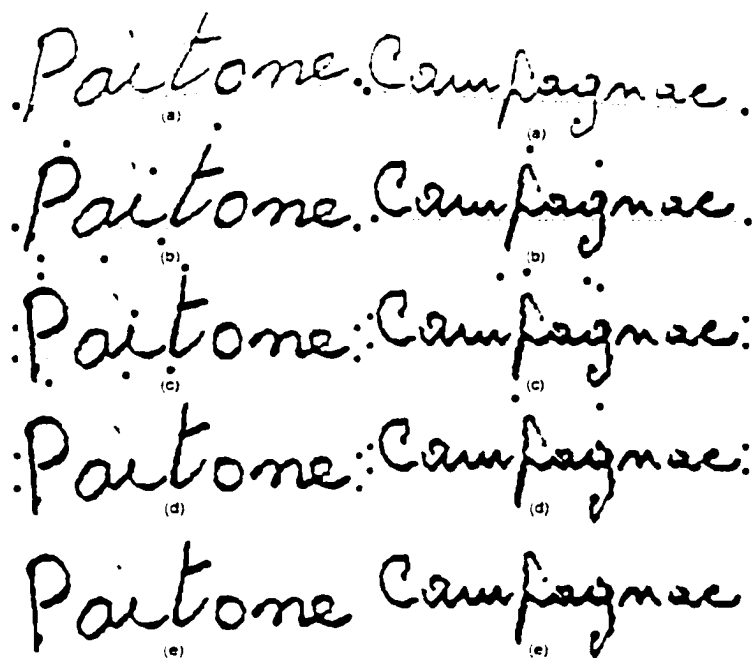 Paitone Campagnac
(a) (a)
Paitone Campagnac
(b) (b)
Paitone Campagnac
(c) (c)
Paitone Campagnac
(d) (d)
Paitone Campagnac
(e) (e)